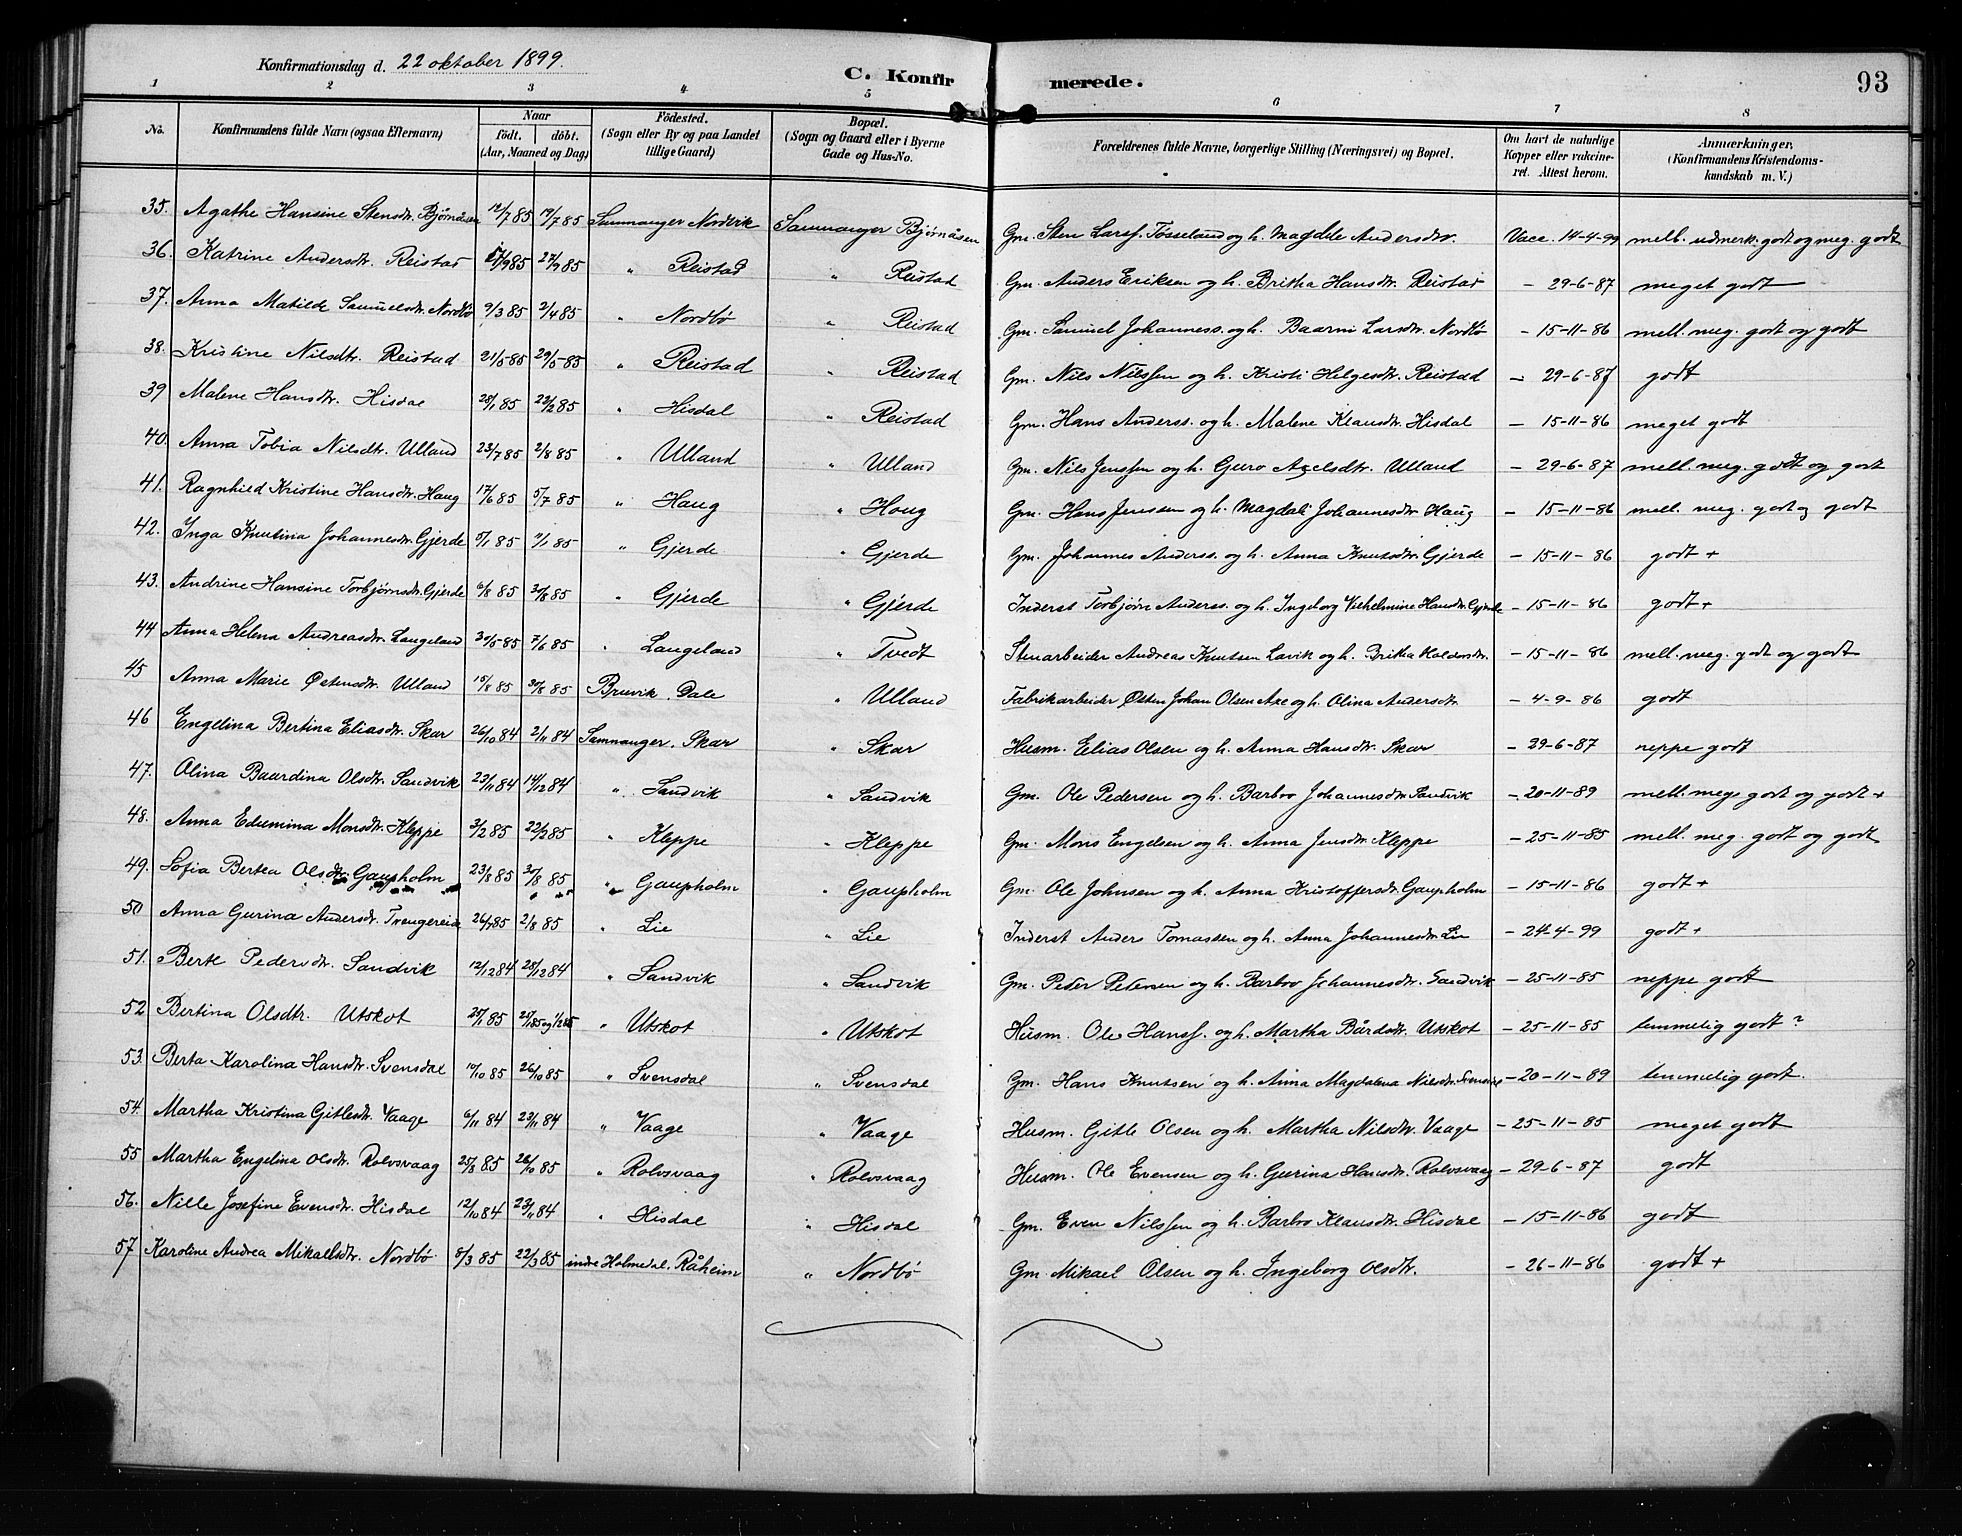 Konfirmationsdag d. 22 oktober 1899.
C. Konfirmerede.
93
1 2 3 4 5 6 7 8
No. Konfirmandens fulde Navn (ogsaa Efternavn) Naar født. døbt. (Aar, Maaned og Dag) Födested. (Sogn eller By og paa Landet tillige Gaard) Bopæl. (Sogn og Gaard eller i Byerne Gade og Hus-No. Forældrenes fulde Navne, borgerlige Stilling (Næringsvei) og Bopæl. Om havt de naturlige Kopper eller vakcineret. Attest herom. Anmærkninger, (Konfirmandens Kristendomskundskab m. V.)
35. Agathe Hansine Stensdr. Bjørnåsen 12/7 85 19/7 85 Samnanger Nordvik Samnanger Bjørnåsen Gm. Sten Larss. Tøsseland og h. Magdele Andersdtr. Vacc. 14-4-99 mell. udmerk. godt og meg. godt
36. Katrine Andersdtr. Reistad 17/9 85 27/9 85 " Reistad " Reistad Gm. Anders Eriksen og h. Britha Hansdtr. Reistad - 29-6-87 meget godt
37. Anna Matilde Samuelsdtr. Nordbø 9/3 85 2/4 85 " Nordbø " Reistad Gm. Samuel Johanness. og h. Baarni Larsdtr. Nordbø - 15-11-86 mell. meg. godt og godt
38. Kristine Nilsdtr. Reistad 21/5 85 29/5 85 " Reistad " Reistad Gm. Nils Nilssen og h. Kristi Helgesdtr. Reistad - 29-6-87 godt
39 Malene Hansdtr. Hisdal 28/1 85 22/2 85 " Hisdal " Reistad Gm. Hans Anderss. og h. Malene Klausdtr. Hisdal - 15-11-86 meget godt
40. Anna Tobia Nilsdtr. Ulland 23/7 85 2/8 85 " Ulland " Ulland Gm. Nils Jenssen og h. Guro Axelsdtr. Ulland - 29-6-87 mell. meg. godt og godt
41. Ragnhild Kristine Hansdtr. Haug 17/6 85 5/7 85 " Haug " Houg Gm. Hans Jenssen og h. Magdali Johannesdtr. Haug - 15-11-86 mell. meg. godt og godt
42. Inga Knutina Johannesdtr. Gjerde 5/1 85 11/1 85 " Gjerde " Gjerde Gm. Johannes Anderss. og h. Anna Knutsdtr. Gjerde - 15-11-86 godt +
43. Andrine Hansine Torbjørnsdtr. Gjerde 6/8 85 30/8 85 " Gjerde " Gjerde Inderst Torbjørn Anderss. og h. Ingeborg Vilhelmine Hansdtr. Gjerde - 15-11-86 godt +
44 Anna Helena Andreasdtr. Langeland 30/5 85 7/6 85 " Langeland " Tvedt Stenarbeider Andreas Knutsen Lavik og h. Britha Haldorsdtr. - 15-11-86 mell. meg. godt og godt
45 Anna Marie Østensdtr. Ulland 15/8 85 30/8 85 Bruvik. Dale " Ulland Fabrikarbeider Østen Johan Olsen Axe og h. Olina Andersdtr - 4-9-86 godt
46 Engelina Bertina Eliasdtr. Skar 26/10 84 2/11 84 Samnanger. Skar " Skar Husm. Elias Olsen og h. Anna Hansdtr. Skar - 29-6-87 neppe godt
47. Olina Baardina Olsdtr. Sandvik 23/11 84 14/12 84 " Sandvik " Sandvik Gm. Ole Pedersen og h. Barbro Johannesdtr. Sandvik - 20-11-89 mell. meg. godt og godt +
48. Anna Edumina Monsdtr. Kleppe 3/2 85 22/2 85 " Kleppe " Kleppe Gm. Mons Engelsen og h. Anna Jensdtr. Kleppe - 25-11-85 mell. meg. godt og godt
49. Sofia Bertea Olsdtr. Gaupholm 23/8 85 30/8 85 " Gaupholm " Gaupholm Gm. Ole Johnsen og h. Anna Kristoffersdtr. Gaupholm - 15-11-86 godt +
50 Anna Gurina Andersdtr. Trengereid 26/7 85 2/8 85 " Lie " Lie Inderst Anders Tomassen og h. Anna Johannesdtr. Lie - 24-4-99 godt +
51. Berte Pedersdtr. Sandvik 12/12 84 28/12 84 " Sandvik " Sandvik Gm. Peter Petersen og h. Barbro Johannesdtr. Sandvik - 25-11-85 neppe godt
52 Bertina Olsdtr. Utskot 25/1 85 25/1 85 og 1/2 85 " Utskot " Utskot Husm. Ole Hanss. og h. Martha Bårdsdtr. Utskot - 25-11-85 temmelig godt?
53. Berta Karolina Hansdtr. Svensdal 10/10 85 26/10 85 " Svensdal " Svensdal Gm. Hans Knutsen og h. Anna Magdalena Nilsdtr. Svensdal - 20-11-89 temmelig godt.
54. Martha Kristina Gitlesdtr. Vaage 6/11 84 23/11 84 " Vaage " Vaage Husm. Gitle Olsen og h. Martha Nilsdtr. Vaage - 25-11-85 meget godt
55 Martha Engelina Olsdtr. Rolvsvaag 25/8 85 26/10 85 " Rolvsvaag " Rolvsvaag Husm. Ole Evensen og h. Gurina Hansdtr. Rolvsvaag - 29-6-87 godt
56. Nille Josefine Evensdtr. Hisdal 12/10 84 23/11 84 " Hisdal " Hisdal Gm. Even Nilssen og h. Barbro Klausdtr. Hisdal - 15-11-86 godt
57 Karoline Andrea Mikaelsdtr. Nordbø 8/3 85 22/3 85 indre Holmedal. Råheim " Nordbø Gm. Mikael Olsen og h. Ingeborg Olsdtr. - 26-11-86 godt +